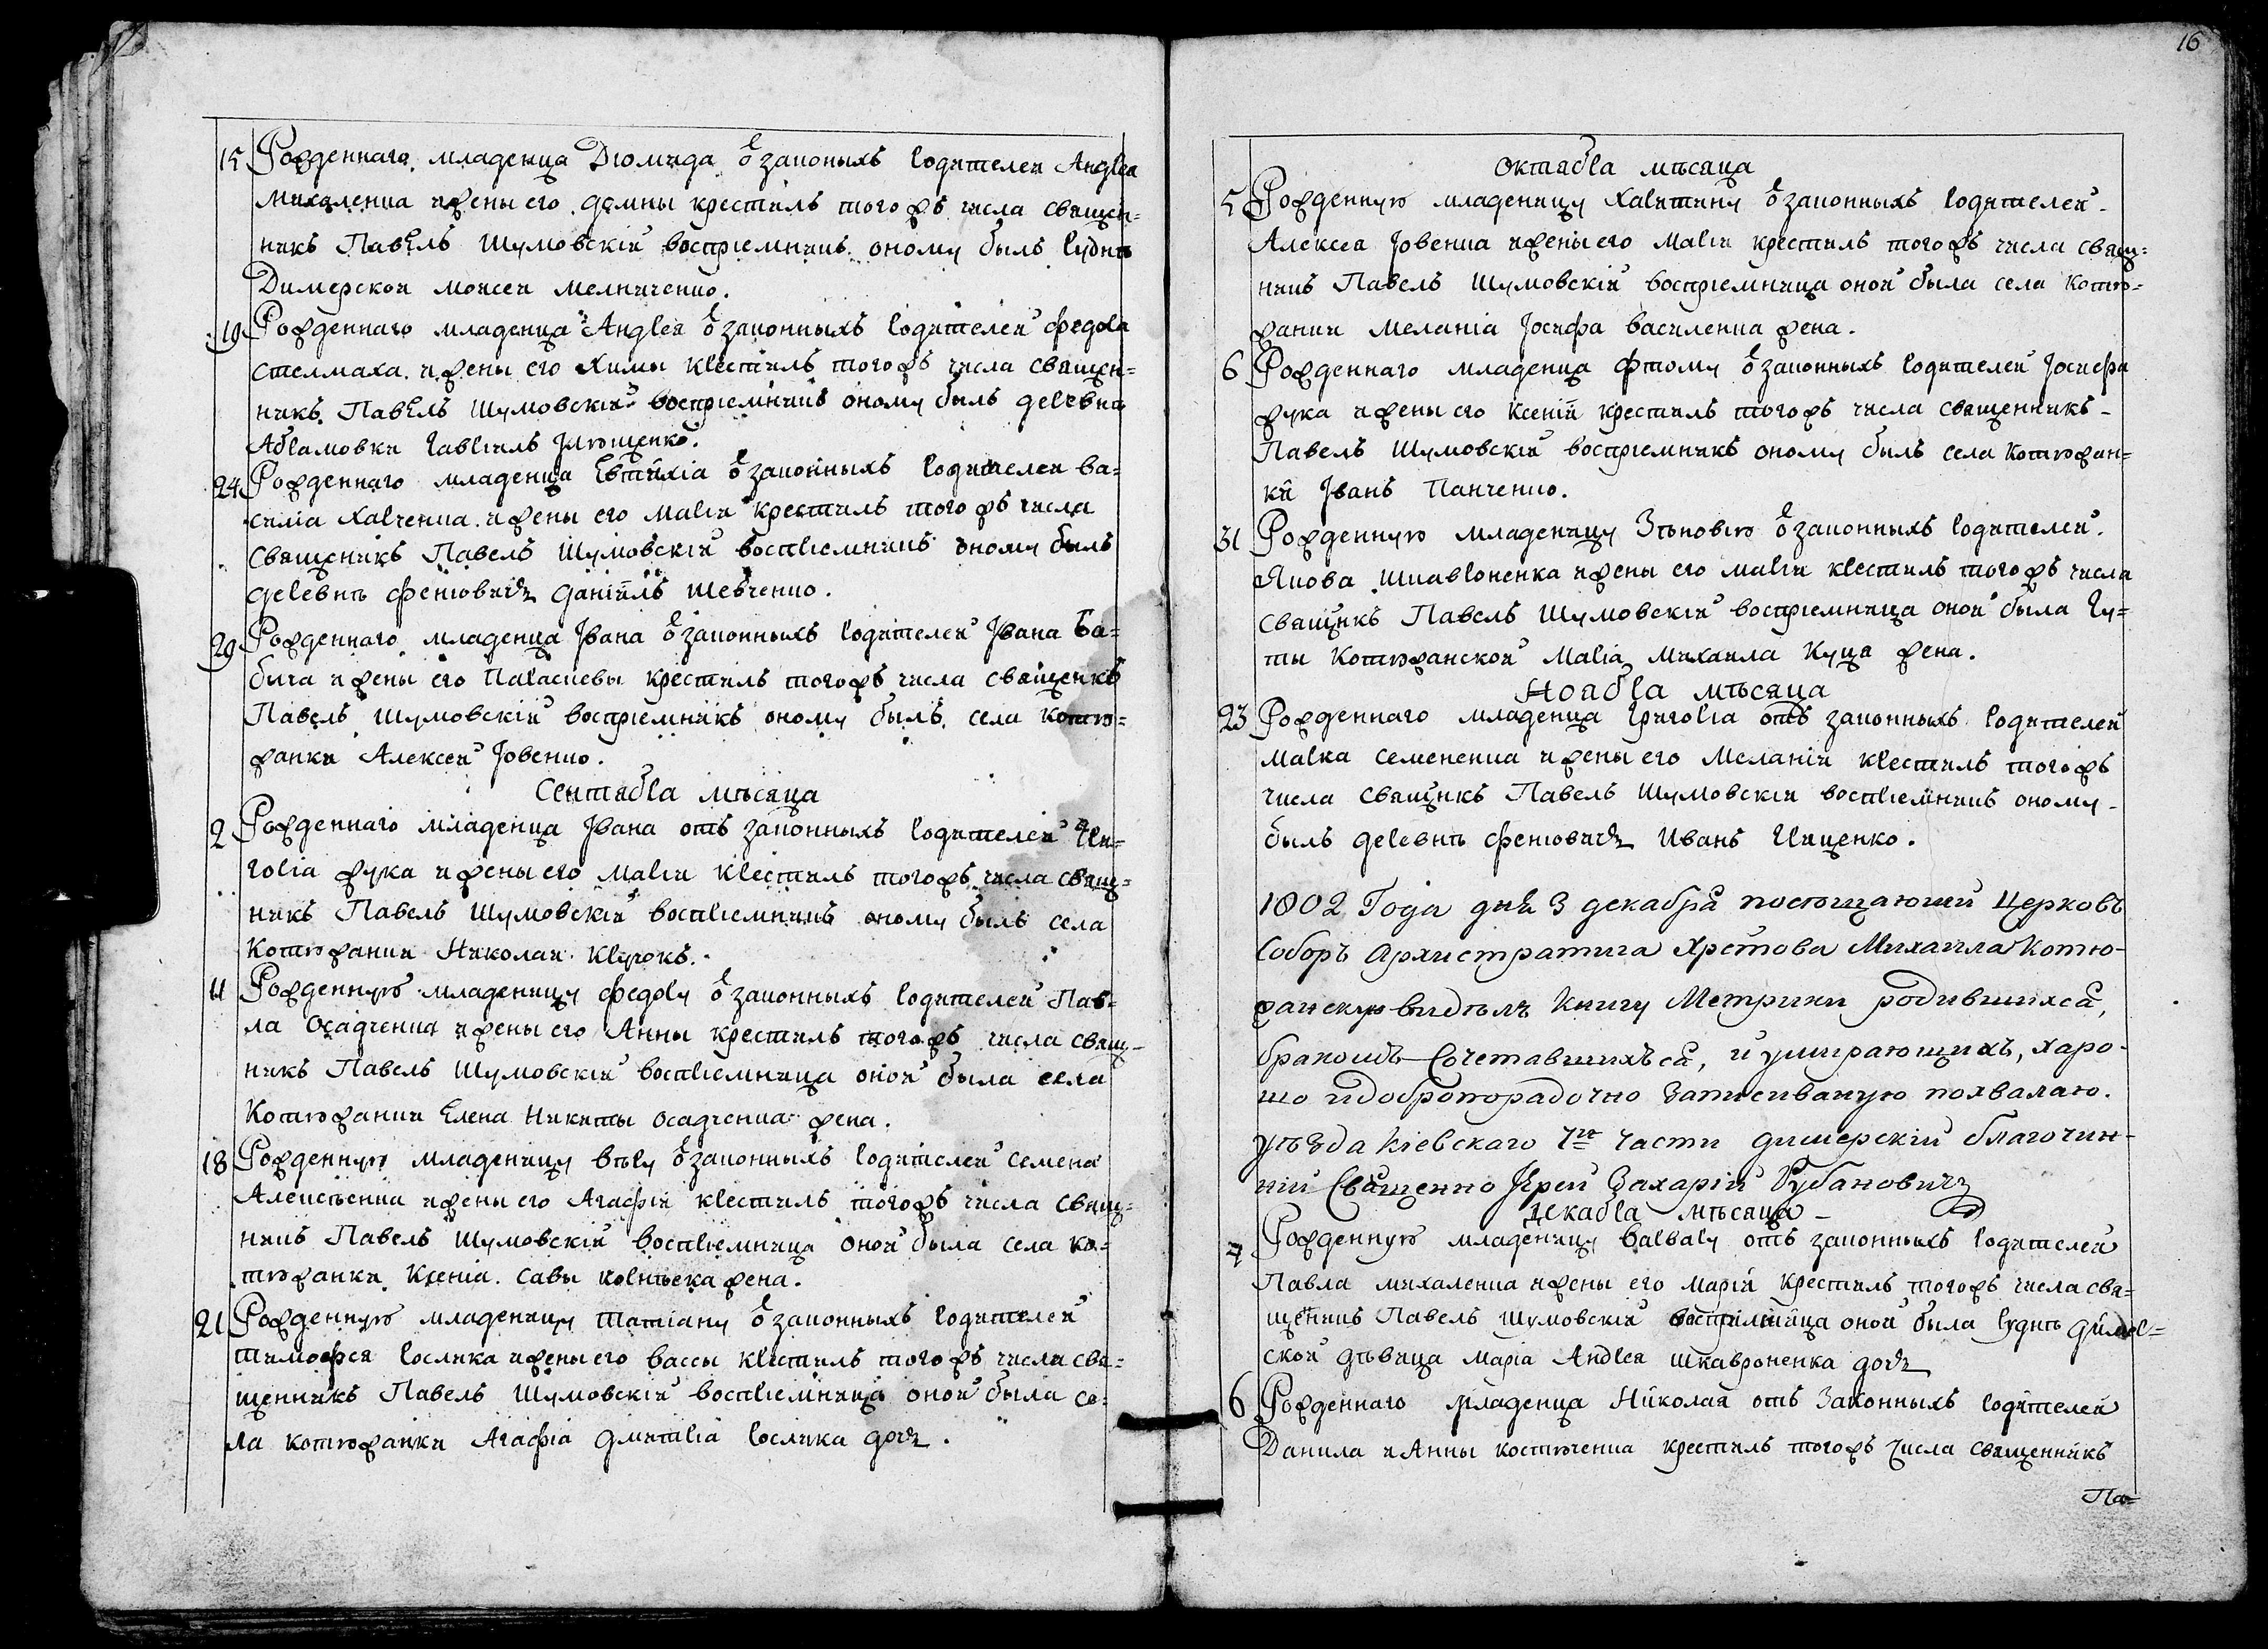 16
15 Рожденнаго младенца Дюмида ѿ законыхъ родителеи Андреа
Михаленка и жены его домны крестилъ того жъ числа священ=
никъ Павелъ Шумовскій воспріемникъ оному былъ рудни
Димерской Моисеи Мелниченко.
19 Рожденнаго младенца Андреа ѿ законныхъ родителей федора
стелмаха и жены его Химы крестилъ того жъ числа священ=
никъ Павелъ Шумовскій воспріемникъ оному былъ деревни
Абрамовки Гавріилъ
24 Рожденнаго младенца Евтихіа ѿ законныхъ родителеи ва=
силіа Харченка и жены его Маріи крестилъ того жъ числа
священикъ Павелъ Шумовскій воспріемникъ оному былъ
деревнѣ феневичъ даніилъ шевченко.
29 Рожденнаго младенца Івана ѿ законныхъ родителей Івана Ба=
бича и жены его Параскевы крестилъ того жъ числа священикъ
Павелъ Шумовскій воспріемникъ оному былъ села котю=
жанки Алексеи Іовенко.
Сентабра мѣсяца
2 Рожденнаго младенца Івана отъ законныхъ родителей Гри=
горіа жука и жены его Маріи крестилъ того жъ числа свящ=
никъ Павелъ Шумовскій воспріемникъ оному былъ села
Котюжанки Николаи
11 Рожденную младеницу федору ѿ законныхъ родителей Пав=
ла Осадченка и жены его Анны крестилъ того жъ числа свящ=
никъ Павелъ Шумовскій воспріемница оной была села
Котюжанки Елена Никиты осадченка жена.
18 Рожденную младеницу вѣру ѿ законныхъ родителей семена
Алексѣенка и жены его Агафіи крестилъ того жъ числа свящ=
никъ Павелъ Шумовскій воспріемница оной была села ко=
тюжанки Ксеніа Савы жена.
21 Рожденную младеницу татіану ѿ законныхъ родителей
тимофея рослика и жены его вассы крестилъ того жъ числа свя=
щенникъ Павелъ Шумовскій воспріемница оной была се=
ла котюжанки Агафіа дмитріа рослика дочъ.
Октабра мѣсяца
5 Рожденную младеницу Харитину ѿ законныхъ родителей
Алексеа Іовенка и жены его Маріи крестилъ того жъ числа свящ=
никъ Павелъ Шумовскій воспріемница оной была села котю=
жанки Меланіа Іосифа василенка жена.
6 Рожденнаго младенца фтому ѿ законныхъ родителей Іосифа
жука и жены его Ксеніи крестилъ того жъ числа священникъ
Павелъ Шумовскій воспріемникъ оному былъ села котюжан=
ки Іванъ Панченко.
31 Рожденную младеницу Зѣновію ѿ законныхъ родителей
Якова Шкавроненка и жены его маріи крестилъ того жъ числа
сващикъ Павелъ Шумовскій воспріемница оной была Гу=
ты Котюжанской Маріа Михаила Куца жена.
Ноабра мѣсяца
23 Рожденнаго младенца Григоріа отъ законныхъ родителей
Марка семененка и жены его Меланіи крестилъ того жъ
числа сващикъ Павелъ Шумовскій воспріемникъ оному
былъ деревнѣ феневичъ Иванъ Ищенко.
1802 Года дня 3 декабря посѣщаючи Церковъ
Соборъ Архистратига Хрстова Михаила Котю-
жанскую видѣлъ Книгу Метрики родившихся,
бракомъ Сочетавшихъся, и умирающихъ, харо-
шо и добропорадочно записиваную похвалаю.
уѣзда Кіевскаго 1го части димерскій благочин-
ній Священно Іерей Захарій Рубановичъ
декабра мѣсяца
4 Рожденную младеницу варвару отъ законныхъ родителей
Павла михаленка и жены его маріи крестилъ того жъ числа свя=
щеникъ Павелъ Шумовскій воспріемница оной была руднѣ димер=
ской дѣвица Маріа Андреа шкавроненка дочъ
6 Рожденнаго младенца Николая отъ Законныхъ родителей
Данила и Анны костюченка крестилъ того жъ числа священникъ
Па=